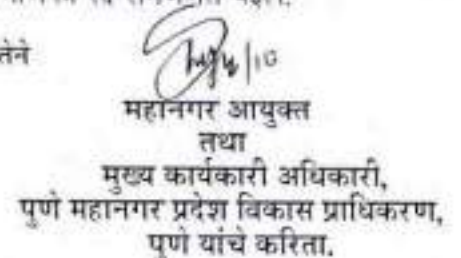 तेने
महानगर आयुक्त
तथा
मुख्य कार्यकारी अधिकारी,
पुणे महानगर प्रदेश विकास प्राधिकरण,
पुणे यांचे करिता.